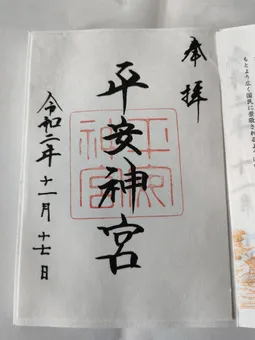 広く国民に崇敬されるよう
奉拝
平安神宮
平安
神宮
令和二年十一月十七日